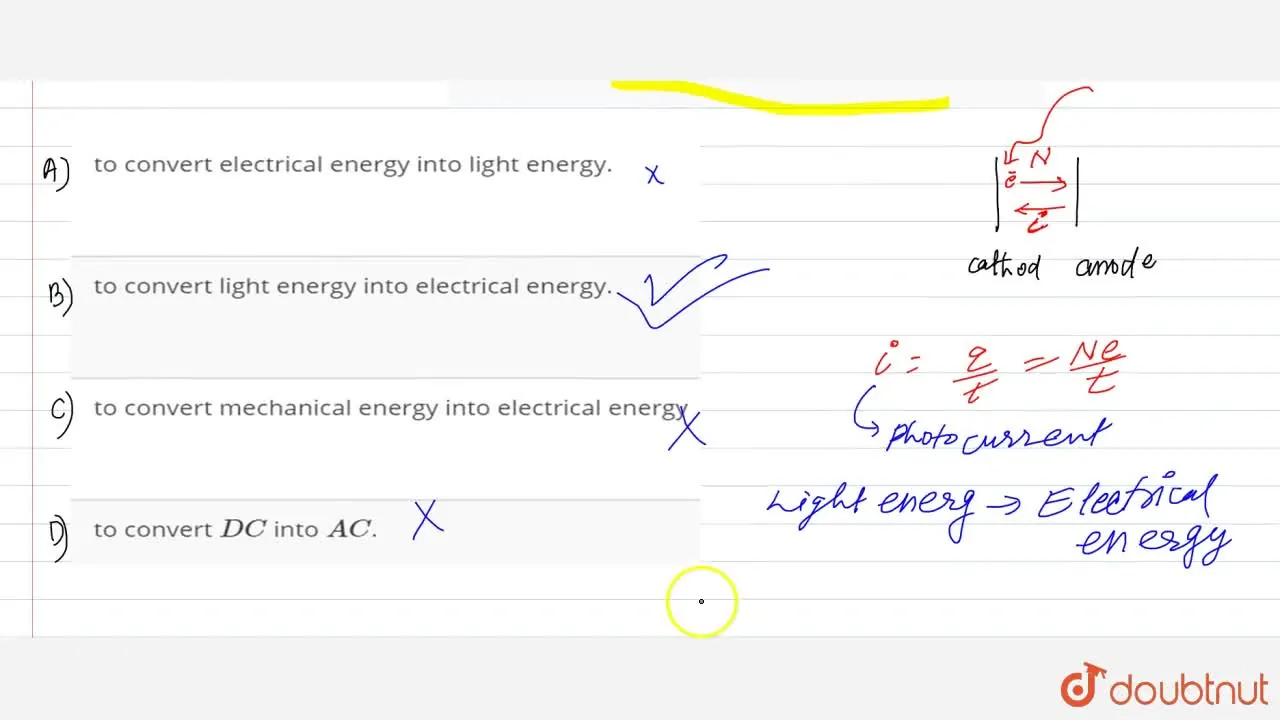 A) to convert electrical energy into light energy. x
N
e
i
cathod anode
B) to convert light energy into electrical energy.
i = q/t = Ne/t
C) to convert mechanical energy into electrical energy X
photocurrent
Light energ → Electrical
energy
D) to convert DC into AC. X
doubtnut